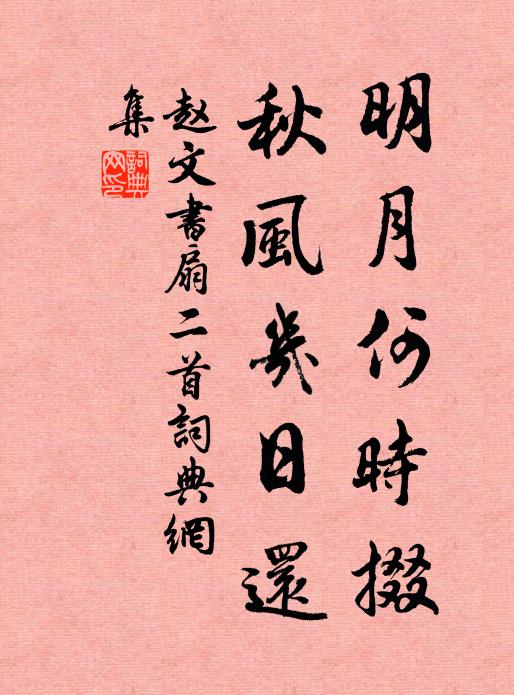 明月何時掇
秋風幾日還
赵文書扇二首詞典網
集
詞典
网印